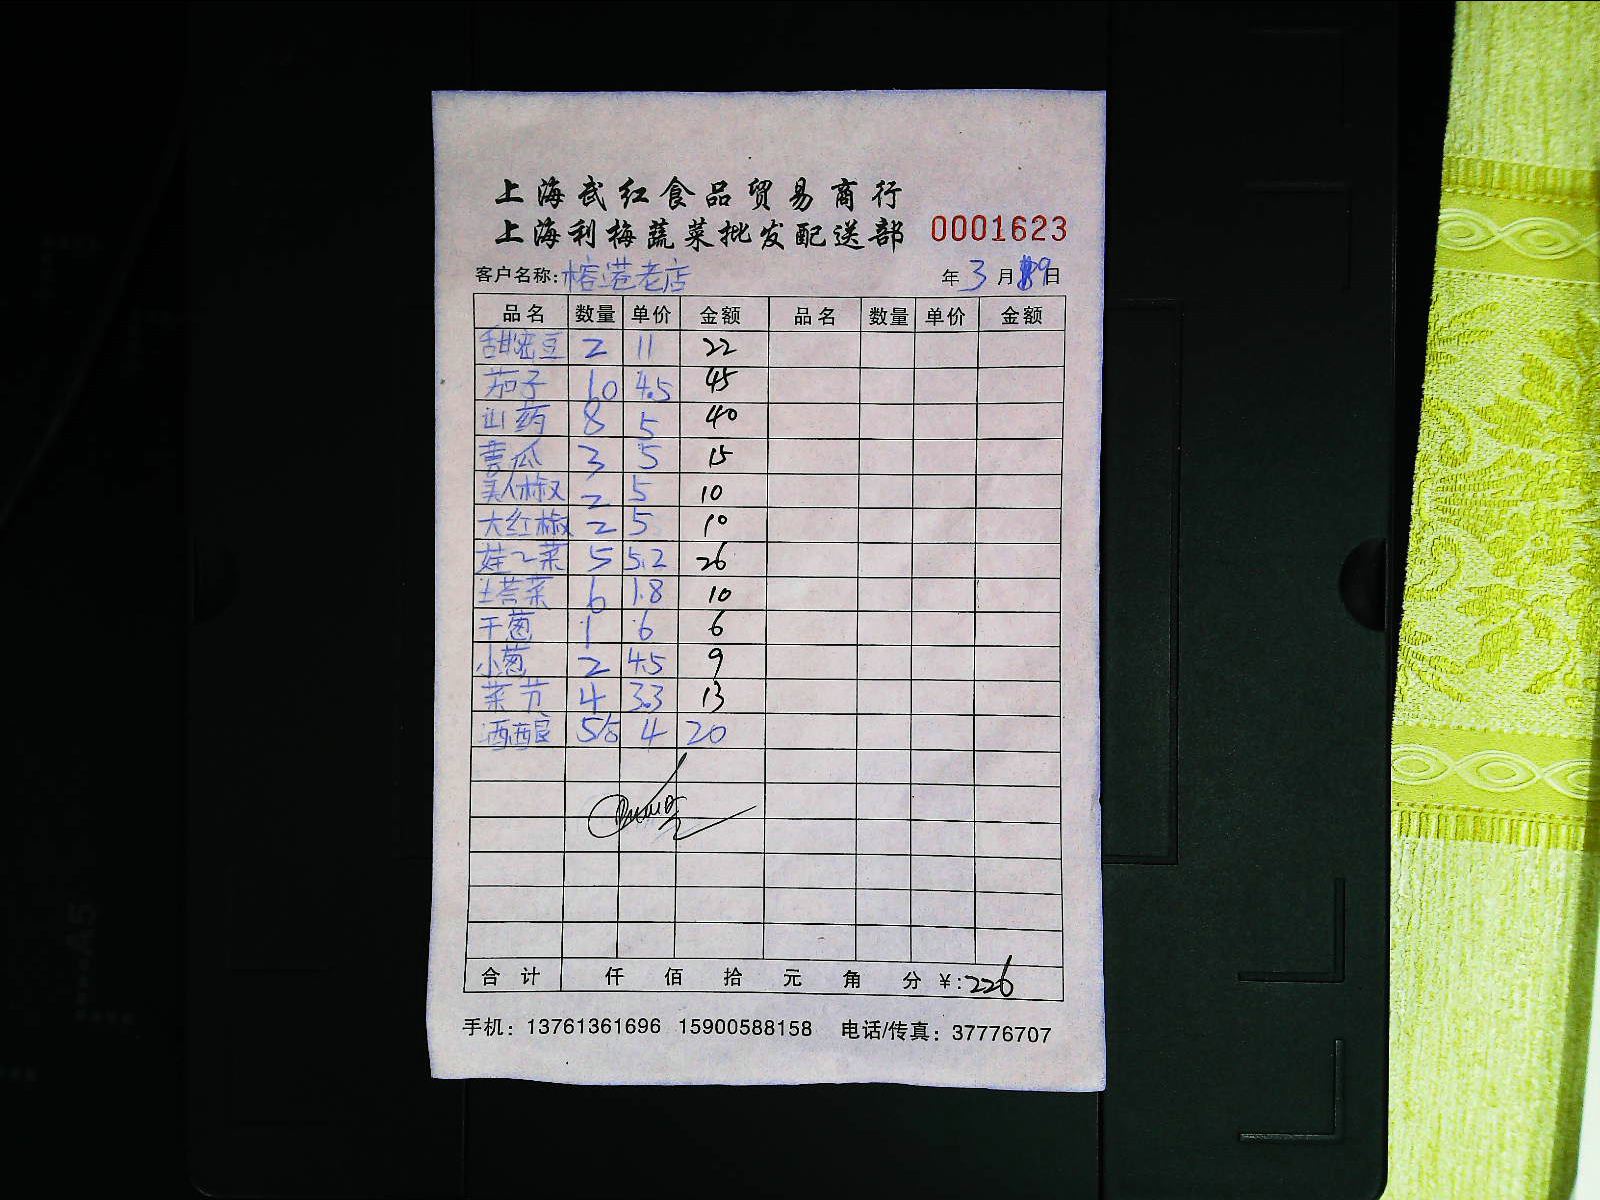 上海武红食品贸易商行
上海利梅蔬菜批发配送部 0001623
客户名称: 榕港老店 年 3 月 19 日
品名 数量 单价 金额 品名 数量 单价 金额
甜蜜豆 2 11 22
茄子 10 4.5 45
山药 8 5 40
黄瓜 3 5 15
美人椒 2 5 10
大红椒 2 5 10
娃〻菜 5 5.2 26
塔菜 6 1.8 10
干葱 1 6 6
小葱 2 4.5 9
菜节 4 3.3 13
酒酿 5/5 4 20
合计 仟 佰 拾 元 角 分 ¥:226
手机：13761361696 15900588158 电话/传真：37776707